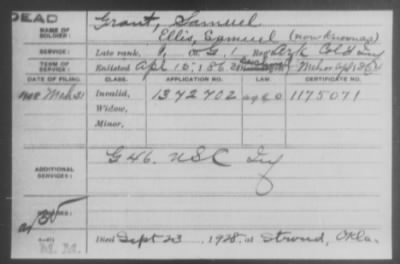 DEAD
NAME OF SOLDIER: Grant, Samuel
Ellis, Samuel (now known as)
SERVICE: Late rank, Co. G, 1 Reg't Ark Col'd Inf
TERM OF SERVICE: Enlisted Apr 15, 186
DATE OF FILING. CLASS. APPLICATION NO. LAW CERTIFICATE NO.
Invalid, 1372702 1175071
Widow,
Minor,
ADDITIONAL SERVICES: G 46. USC Inf
REMARKS:
Died Sept 23, 1928, at Stroud, Okla.